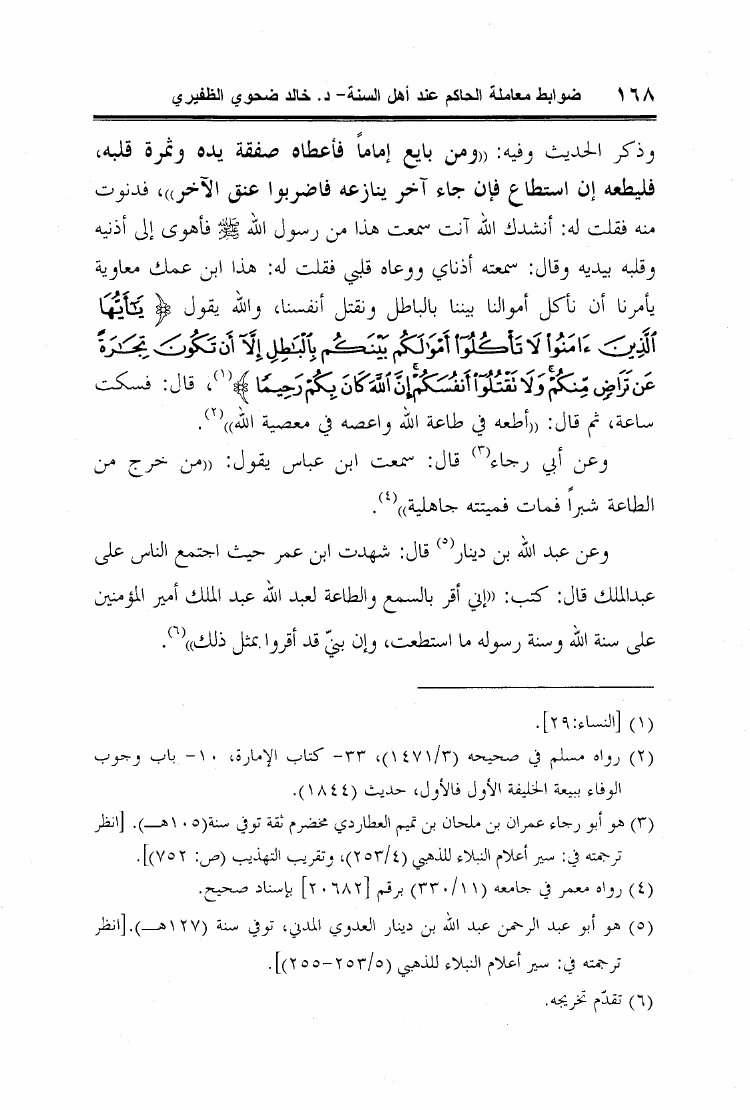 ١٦٨ ضوابط معاملة الحاكم عند أهل السنة- د. خالد ضحوي الظفيري
وذكر الحديث وفيه: ((ومن بايع إماماً فأعطاه صفقة يده وثمرة قلبه،
فليطعه إن استطاع فإن جاء آخر ينازعه فاضربوا عنق الآخر))، فدنوت
منه فقلت له: أنشدك الله آنت سمعت هذا من رسول الله ﷺ فأهوى إلى أذنيه
وقلبه بيديه وقال: سمعته أذناي ووعاه قلبي فقلت له: هذا ابن عمك معاوية
يأمرنا أن نأكل أموالنا بيننا بالباطل ونقتل أنفسنا، والله يقول ﴿ يَـٰٓأَيُّهَا
ٱلَّذِينَ ءَامَنُوا۟ لَا تَأْكُلُوٓا۟ أَمْوَٰلَكُم بَيْنَكُم بِٱلْبَـٰطِلِ إِلَّآ أَن تَكُونَ تِجَـٰرَةً
عَن تَرَاضٍ مِّنكُمْ ۚ وَلَا تَقْتُلُوٓا۟ أَنفُسَكُمْ ۚ إِنَّ ٱللَّهَ كَانَ بِكُمْ رَحِيمًا ﴾(١)، قال: فسكت
ساعة، ثم قال: ((أطعه في طاعة الله واعصه في معصية الله))(٢).
وعن أبي رجاء(٣) قال: سمعت ابن عباس يقول: ((من خرج من
الطاعة شبراً فمات فميتته جاهلية))(٤).
وعن عبد الله بن دينار(٥) قال: شهدت ابن عمر حيث اجتمع الناس على
عبدالملك قال: كتب: ((إني أقر بالسمع والطاعة لعبد الله عبد الملك أمير المؤمنين
على سنة الله وسنة رسوله ما استطعت، وإن بنيّ قد أقروا بمثل ذلك))(٦).
(١) [النساء:٢٩].
(٢) رواه مسلم في صحيحه (١٤٧١/٣)، ٣٣- كتاب الإمارة، ١٠- باب وجوب
الوفاء ببيعة الخليفة الأول فالأول، حديث (١٨٤٤).
(٣) هو أبو رجاء عمران بن ملحان بن تميم العطاردي مخضرم ثقة توفي سنة(١٠٥هـ). [انظر
ترجمته في: سير أعلام النبلاء للذهبي (٢٥٣/٤)، وتقريب التهذيب (ص: ٧٥٢)].
(٤) رواه معمر في جامعه (٣٣٠/١١) برقم [٢٠٦٨٢] بإسناد صحيح.
(٥) هو أبو عبد الرحمن عبد الله بن دينار العدوي المدني، توفي سنة (١٢٧هـ).[انظر
ترجمته في: سير أعلام النبلاء للذهبي (٢٥٣/٥-٢٥٥)].
(٦) تقدّم تخريجه.